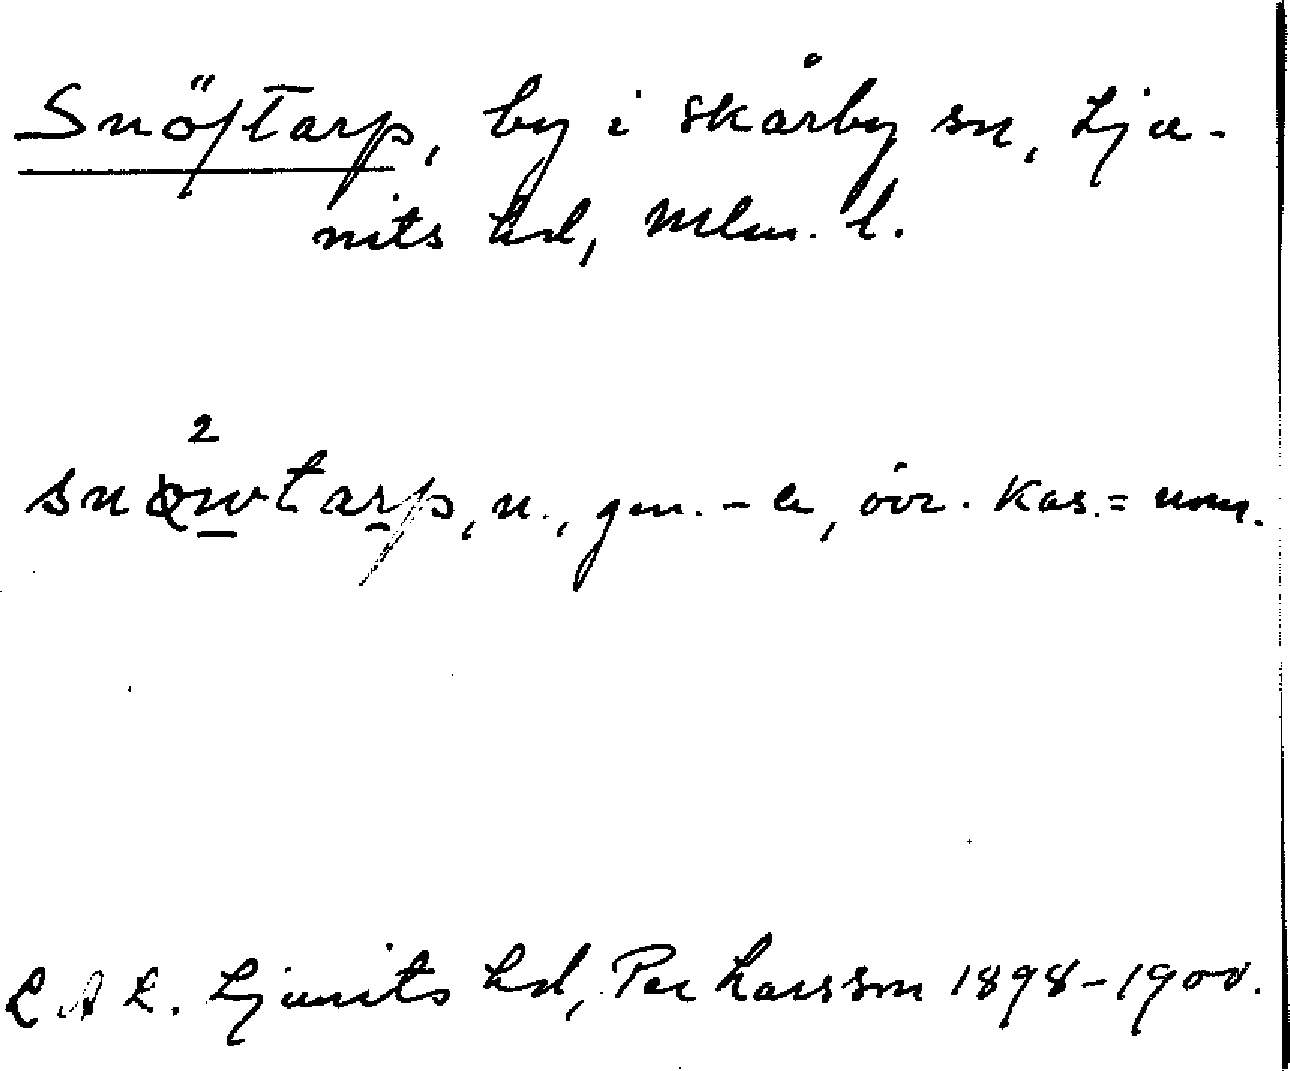 Snöftarp, by i Skårby sn, Lju-
nits hd, Mlm. l.
2
snöwtarp, n., gen. -a, övr. kas. = nom.
LAL. Ljunits hd, Per Larsson 1898-1900.